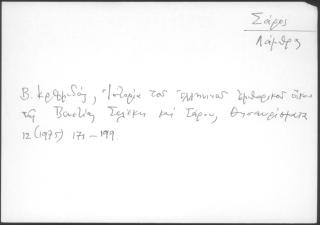 Σάρος
Λάμπρος
Β. Κρεμμυδάς, Ἱστορία τοῦ ἑλληνικοῦ ἐμπορικοῦ οἴκου
τῆς Βενετίας Σελέκη καί Σάρου, Θησαυρίσματα
12 (1975) 171-199.